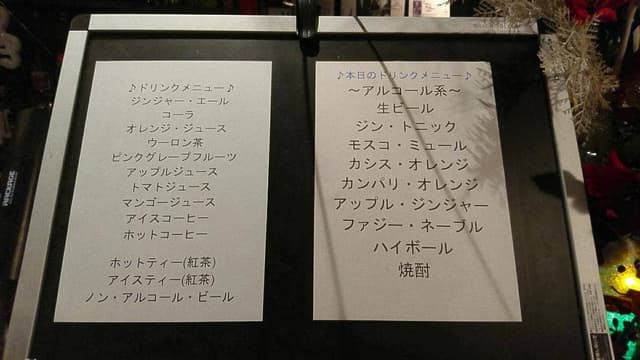 ♪ドリンクメニュー♪
ジンジャー・エール
コーラ
オレンジ・ジュース
ウーロン茶
ピンクグレープフルーツ
アップルジュース
トマトジュース
マンゴージュース
アイスコーヒー
ホットコーヒー
ホットティー(紅茶)
アイスティー(紅茶)
ノン・アルコール・ビール
♪本日のドリンクメニュー♪
～アルコール系～
生ビール
ジン・トニック
モスコ・ミュール
カシス・オレンジ
カンパリ・オレンジ
アップル・ジンジャー
ファジー・ネーブル
ハイボール
焼酎